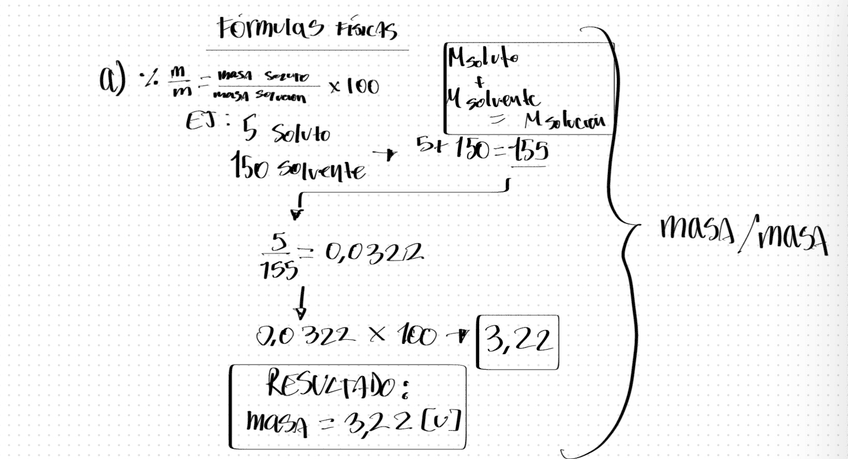 FórmulaS Físicas
a) % m/m = masa soluto / masa solución × 100
Msoluto
+
M solvente
= M solución
EJ: 5 soluto
150 solvente → 5+150=155
5/155 = 0,0322
0,0322 × 100 → 3,22
RESULTADO:
masa = 3,22 [U]
masa/masa